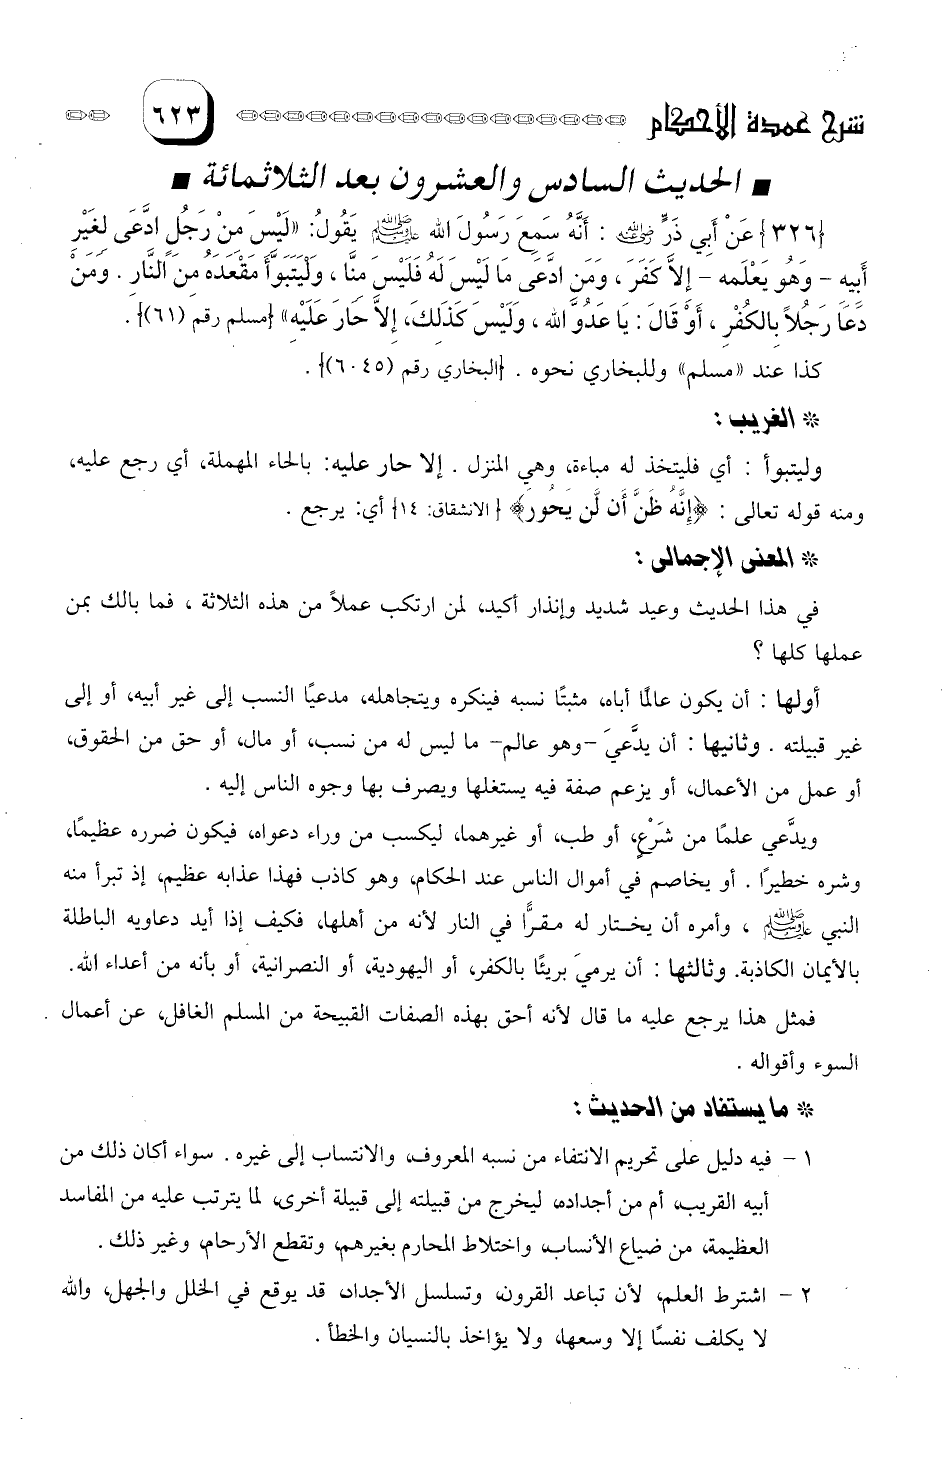 شرح عمدة الأحكام ٦٢٣
■ الحديث السادس والعشرون بعد الثلاثمائة ■
{٣٢٦} عَنْ أَبِي ذَرٍّ رضي الله عنه : أَنَّهُ سَمِعَ رَسُولَ الله ﷺ يَقُولُ: «لَيْسَ مِنْ رَجُلٍ ادَّعَى لِغَيْرِ
أَبِيه – وَهُو يَعْلَمه – إلاَّ كَفَرَ ، وَمَن ادَّعَى مَا لَيْسَ لَهُ فَلَيْسَ مِنَّا ، ولْيَتَبَوَّأ مَقْعَدَهُ مِنَ النَّار . وَمَنْ
دَعَا رَجُلاً بالكُفْرِ ، أَوْ قَالَ : يا عَدُوَّ الله ، ولَيْس كَذَلَك، إلاَّ حَار عَلَيْه» {مسلم رقم (٦١)} .
كذا عند «مسلم» وللبخاري نحوه . {البخاري رقم (٦٠٤٥)} .
❊ الغريب :
وليتبوأ : أي فليتخذ له مباءة، وهي المنزل . إلا حار عليه: بالحاء المهملة، أي رجع عليه،
ومنه قوله تعالى : ﴿إِنَّهُ ظَنَّ أَن لَّن يَحُورَ﴾ {الانشقاق: ١٤} أي: يرجع .
❊ المعنى الإجمالى :
في هذا الحديث وعيد شديد وإنذار أكيد، لمن ارتكب عملاً من هذه الثلاثة ، فما بالك بمن
عملها كلها ؟
أولها : أن يكون عالمًا أباه، مثبتًا نسبه فينكره ويتجاهله، مدعيًا النسب إلى غير أبيه، أو إلى
غير قبيلته . وثانيها : أن يدَّعيَ –وهو عالم– ما ليس له من نسب، أو مال، أو حق من الحقوق،
أو عمل من الأعمال، أو يزعم صفة فيه يستغلها ويصرف بها وجوه الناس إليه .
ويدَّعي علمًا من شَرْعٍ، أو طب، أو غيرهما، ليكسب من وراء دعواه، فيكون ضرره عظيمًا،
وشره خطيرًا . أو يخاصم في أموال الناس عند الحكام، وهو كاذب فهذا عذابه عظيم، إذ تبرأ منه
النبي ﷺ ، وأمره أن يختار له مقرًّا في النار لأنه من أهلها، فكيف إذا أيد دعاويه الباطلة
بالأيمان الكاذبة. وثالثها : أن يرميَ بريئًا بالكفر، أو اليهودية، أو النصرانية، أو بأنه من أعداء الله.
فمثل هذا يرجع عليه ما قال لأنه أحق بهذه الصفات القبيحة من المسلم الغافل، عن أعمال
السوء وأقواله .
❊ ما يستفاد من الحديث :
١ – فيه دليل على تحريم الانتفاء من نسبه المعروف، والانتساب إلى غيره . سواء أكان ذلك من
أبيه القريب، أم من أجداده، ليخرج من قبيلته إلى قبيلة أخرى، لما يترتب عليه من المفاسد
العظيمة، من ضياع الأنساب، واختلاط المحارم بغيرهم، وتقطع الأرحام، وغير ذلك .
٢ – اشترط العلم، لأن تباعد القرون، وتسلسل الأجداد، قد يوقع في الخلل والجهل، والله
لا يكلف نفسًا إلا وسعها، ولا يؤاخذ بالنسيان والخطأ .